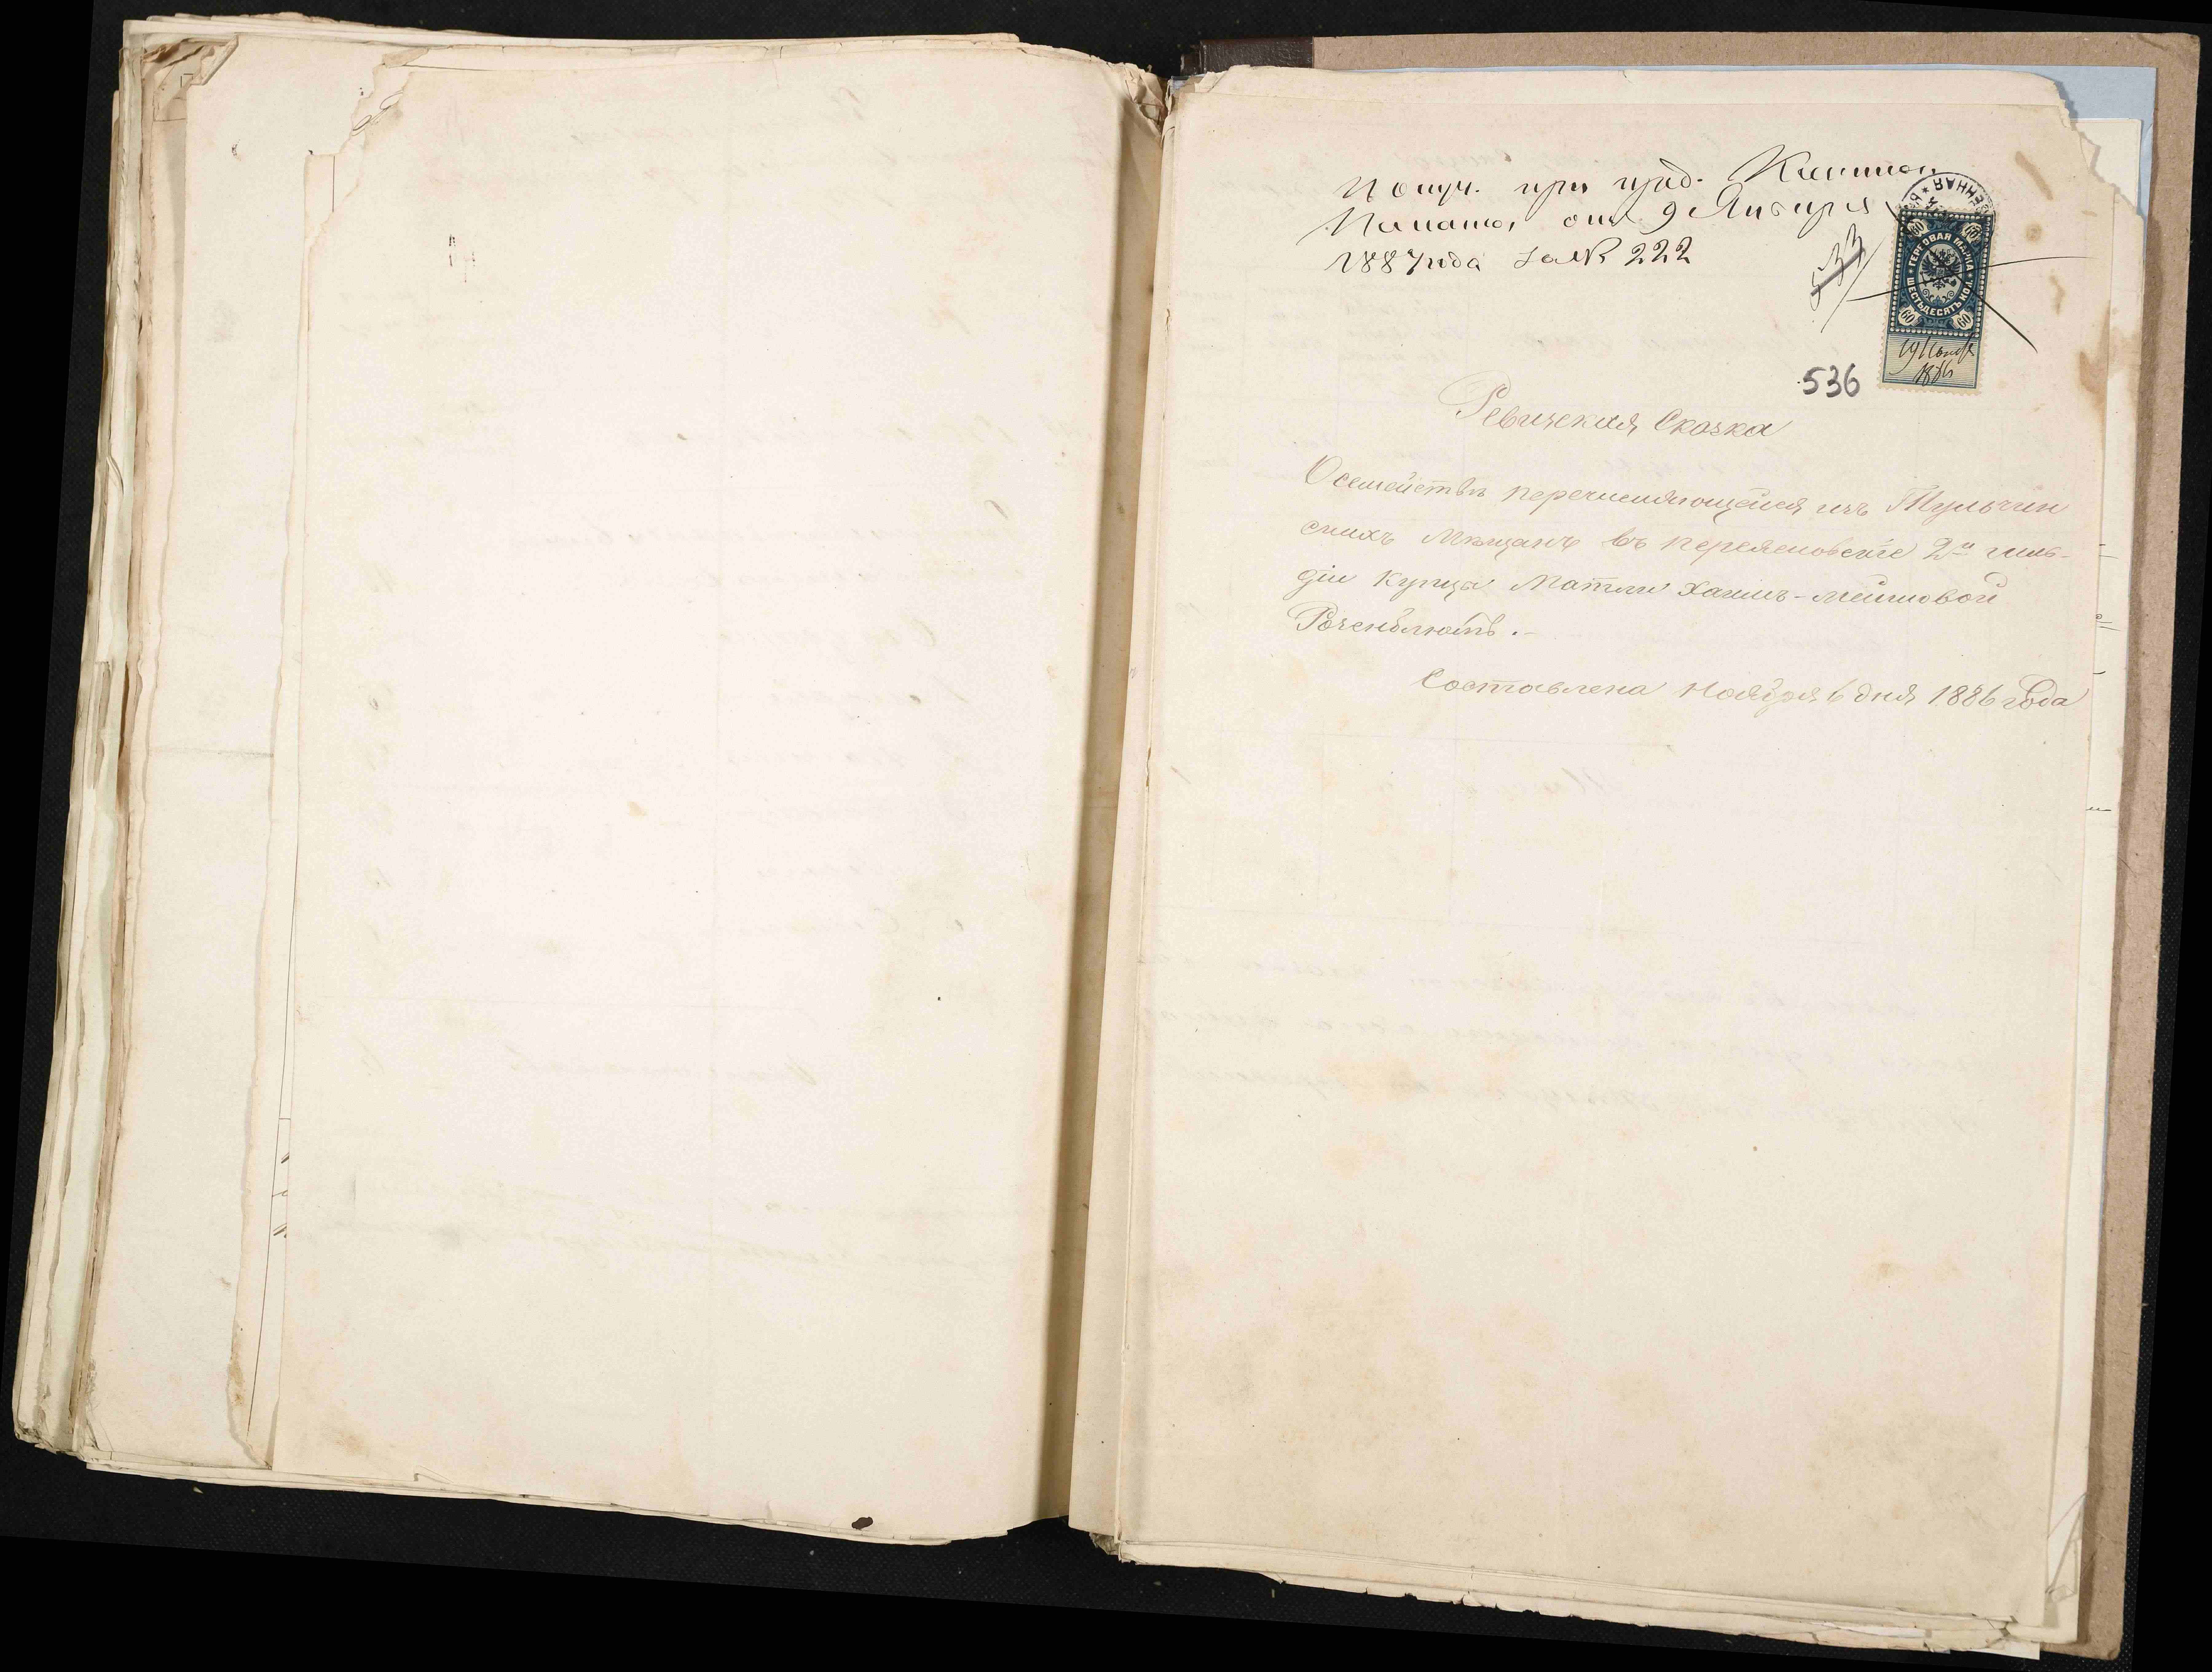 Получ. при пред. Казенной
Палаты отъ 9 Января
1887 года за № 222
533
ГЕРБОВАЯ МАРКА
ШЕСТЬДЕСЯТЪ КОП.
60 60
60 60
19 Ноября
1886
536
Ревизская Сказка
О семействѣ перечисляющейся изъ Тульчин
скихъ Мѣщанъ въ переяславскіе 2й гиль-
діи Купца Матли Хаимъ-Мейшовой
Розенблютъ.-
Составлена Ноября 6 дня 1886 Года